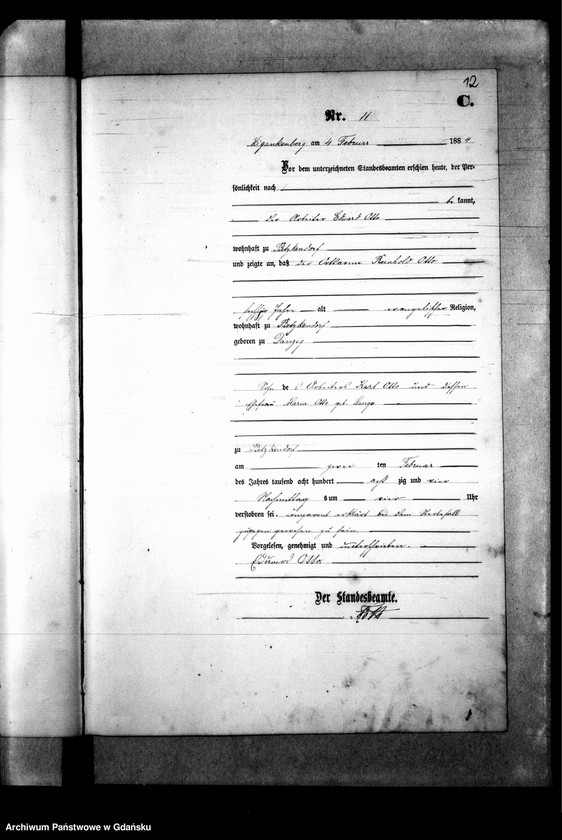 12
C.
Nr. 11
Zigankenberg am 4 Februar 1884
Vor dem unterzeichneten Standesbeamten erschien heute, der Per-
sönlichkeit nach
be kannt,
der Arbeiter Eduard Otto
wohnhaft zu Pietzkendorf
und zeigte an, daß der Reinhold Otto
Jahre alt evangelischer Religion,
wohnhaft zu Pietzkendorf
geboren zu Danzig
Sohn des Arbeiters Karl Otto und dessen
Ehefrau Maria Otto geb. Lange
zu Pietzkendorf
am zwei ten Februar
des Jahres tausend acht hundert acht zig und vier
Nachmittags um vier Uhr
verstorben sei. Comparent erklärt bei dem Sterbefall
zugegen gewesen zu sein.
Vorgelesen, genehmigt und unterschrieben.
Eduard Otto
Der Standesbeamte.
Archiwum Państwowe w Gdańsku